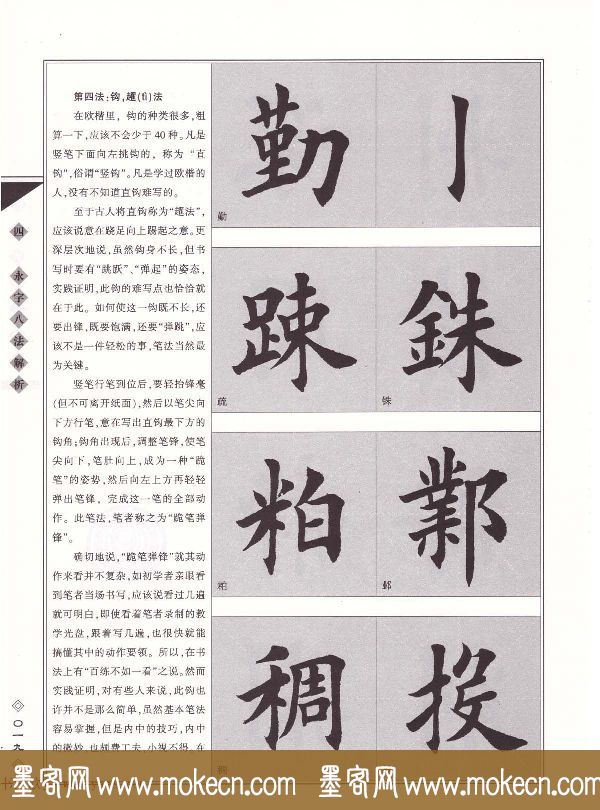 第四法:钩,趯(tì)法
在欧楷里,钩的种类很多,粗
算一下,应该不会少于40种。凡是
竖笔下面向左挑钩的,称为“直
钩”,俗谓“竖钩”。凡是学过欧楷的
人,没有不知道直钩难写的。
至于古人将直钩称为“趯法”,
应该说意在跷足向上踢起之意。更
深层次地说,虽然钩身不长,但书
写时要有“跳跃”、“弹起”的姿态,
实践证明,此钩的难写点也恰恰就
在于此。如何使这一钩既不长,还
要出锋,既要饱满,还要“弹跳”,应
该不是一件轻松的事,笔法当然最
为关键。
竖笔行笔到位后,要轻抬锋毫
(但不可离开纸面),然后以笔尖向
下方行笔,意在写出直钩最下方的
钩角;钩角出现后,调整笔锋,使笔
尖向下,笔肚向上,成为一种“跪
笔”的姿势,然后向左上方再轻轻
弹出笔锋,完成这一笔的全部动
作。此笔法,笔者称之为“跪笔弹
锋”。
确切地说,“跪笔弹锋”就其动
作来看并不复杂,如初学者亲眼看
到笔者当场书写,应该说看过几遍
就可明白,即使看着笔者录制的教
学光盘,跟着写几遍,也很快就能
搞懂其中的动作要领。所以,在书
法上有“百练不如一看”之说。然而
实践证明,对有些人来说,此钩也
许并不是那么简单,虽然基本笔法
容易掌握,但是内中的技巧,内中
的微妙,也颇费工夫,小视不得。在
四 永字八法解析
〇一九
勤 亅
勤
踈 銖
疏 铢
粕 鄴
粕 邺
稠 投
稠
墨客网 www.mokecn.com 墨客网 www.mokecn.com